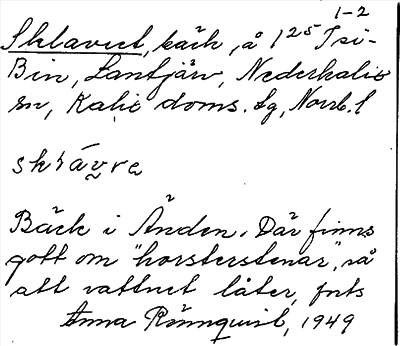 1-2
Sklavret, bäck, å 125 Tri-
Bin, Lantjärv, Nederkalix
sn, Kalix doms. lg, Norrb. l
skrávra
Bäck i Änden. Där finns
gott om "horsterstenar", så
att vattnet låter, fnts
Anna Rönnquist, 1949